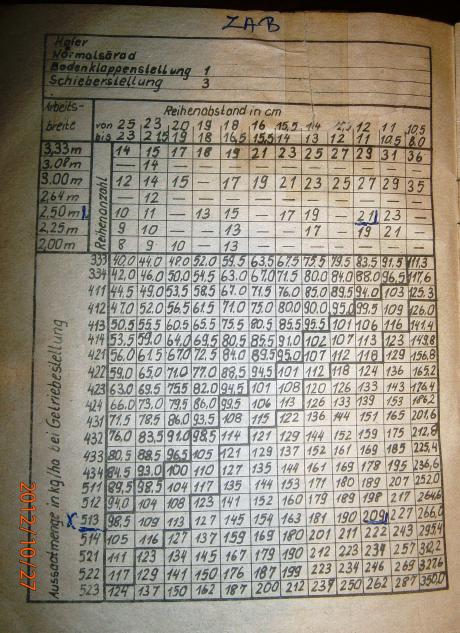 ZAB
Hafer
Normalsärad
Bodenklappenstellung 1
Schieberstellung 3
Arbeits-
breite
Reihenabstand in cm
von 25 23 20 19 18 16 15,5 14 12 11 10,5
bis 23 21,5 19 18 16,5 15,5 14 13 12 11 10,5 8,0
Reihenanzahl
3,33 m 14 15 17 18 19 21 23 25 27 29 31 36
3.08 m — 14 — — — — — — — — — —
3.00 m 12 14 15 — 17 19 21 23 25 27 29 35
2,64 m — 12 — — — — — — — — — —
2,50 m 10 11 — 13 15 — 17 19 — 21 23
2,25 m 9 10 — — 13 — — 17 — 19 21
2,00 m 8 9 10 — 13
Aussaatmenge in kg/ha bei Getriebestellung
333 40,0 44,0 48,0 52,0 59,5 63,5 67,5 75,5 79,5 83,5 91,5 111,3
334 42,0 46,0 50,0 54,5 63,0 67,0 71,5 80,0 84,0 88,0 96,5 117,6
411 44,5 49,0 53,5 58,5 67,0 71,5 76,0 85,0 89,5 94,0 103 125,3
412 47,0 52,0 56,5 61,5 71,0 75,0 80,0 90,0 95,0 99,5 109 126,0
413 50,5 55,5 60,5 65,5 75,5 80,5 85,5 95,5 101 106 116 141,4
414 53,5 59,0 64,0 69,5 80,5 85,5 91,0 102 107 113 123 149,8
421 56,0 61,5 67,0 72,5 84,0 89,5 95,0 107 112 118 129 156,8
422 59,0 65,0 71,0 77,0 88,5 94,5 101 112 118 124 136 165,2
423 63,0 69,5 75,5 82,0 94,5 101 108 120 126 133 143 176,4
424 66,0 73,0 79,5 86,0 99,5 106 113 126 133 139 153 186,2
431 71,5 78,5 86,0 93,5 108 115 122 136 144 151 165 201,6
432 76,0 83,5 91,0 98,5 114 121 129 144 152 159 175 212,8
433 80,5 88,5 96,5 105 121 129 137 152 161 169 185 225,4
434 84,5 93,0 100 110 127 135 144 161 169 178 195 236,6
511 89,5 98,5 104 117 135 144 153 171 180 189 207 252,0
512 94,0 104 108 123 141 152 160 179 189 198 217 264,6
x 513 98,5 109 113 127 145 154 163 181 190 209 227 266,0
514 105 116 127 137 159 169 180 201 211 222 243 295,4
521 111 123 134 145 167 179 190 212 223 234 257 310,2
522 117 129 141 150 176 187 199 223 234 246 269 327,6
523 124 137 150 162 187 200 212 237 250 262 287 350,0
2012/10/27